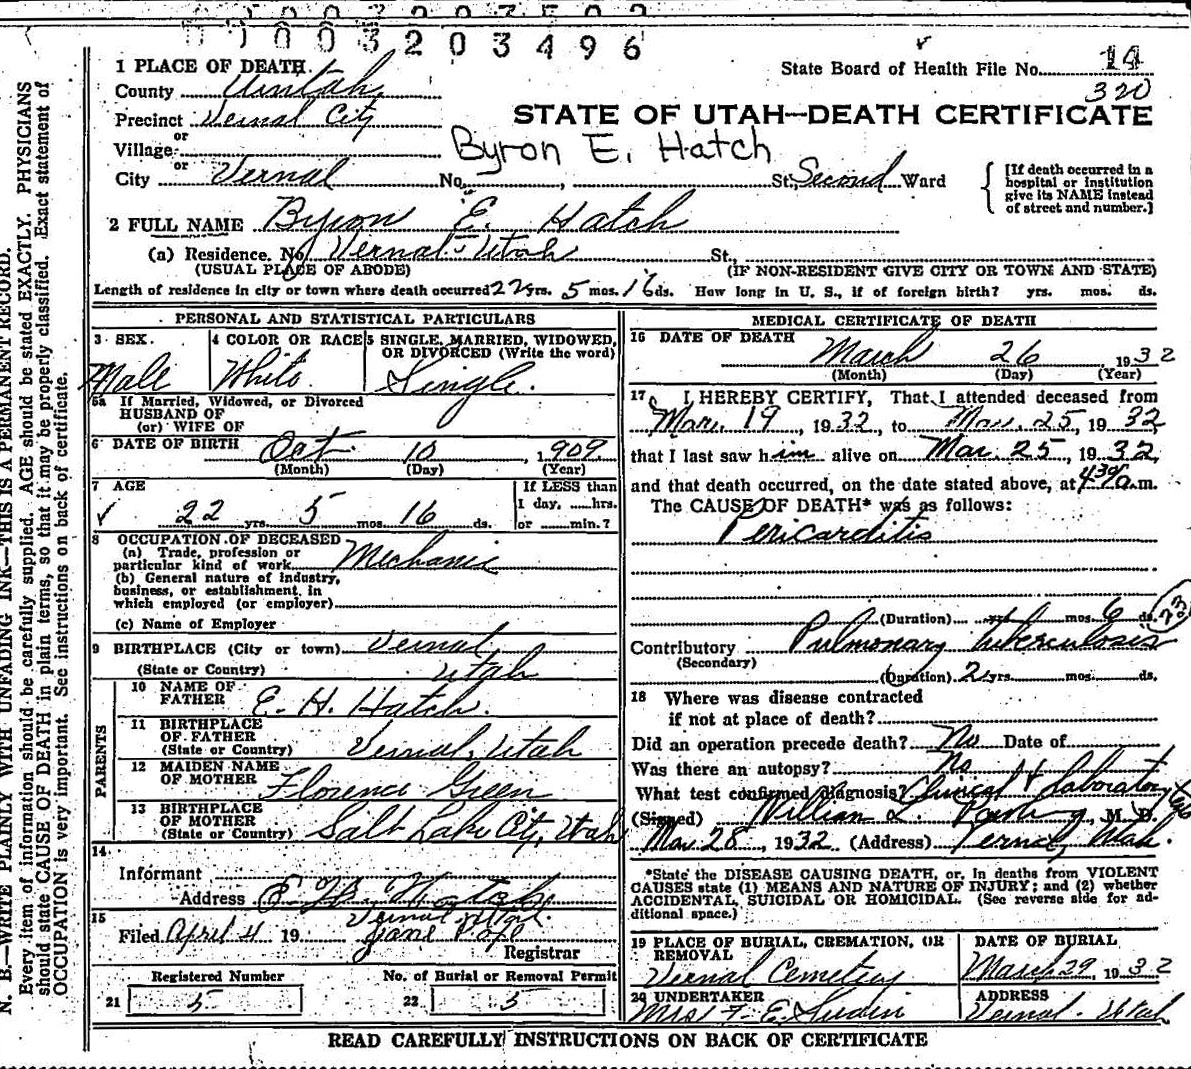 0003203496
1 PLACE OF DEATH.
County Uintah
State Board of Health File No. 14
320
Precinct Vernal City
STATE OF UTAH—DEATH CERTIFICATE
or
Village
Byron E. Hatch
or
City Vernal No. , St., Second Ward
{ [If death occurred in a hospital or institution give its NAME instead of street and number.]
2 FULL NAME Byron E. Hatch
(a) Residence. No. Vernal - Utah St.,
(USUAL PLACE OF ABODE) (IF NON-RESIDENT GIVE CITY OR TOWN AND STATE)
Length of residence in city or town where death occurred 22 yrs. 5 mos. 16 ds. How long in U. S., if of foreign birth? yrs. mos. ds.
PERSONAL AND STATISTICAL PARTICULARS
3 SEX. 4 COLOR OR RACE 5 SINGLE, MARRIED, WIDOWED, OR DIVORCED (Write the word)
Male White Single.
5a If Married, Widowed, or Divorced
HUSBAND OF
(or) WIFE OF
6 DATE OF BIRTH Oct 10, 1909
(Month) (Day) (Year)
7 AGE If LESS than
1 day, hrs.
22 yrs. 5 mos. 16 ds. or min.?
8 OCCUPATION OF DECEASED
(a) Trade, profession or
particular kind of work Mechanic
(b) General nature of industry,
business, or establishment in
which employed (or employer)
(c) Name of Employer
9 BIRTHPLACE (City or town) Vernal
(State or Country) Utah
PARENTS
10 NAME OF FATHER E. H. Hatch.
11 BIRTHPLACE OF FATHER (State or Country) Vernal, Utah
12 MAIDEN NAME OF MOTHER Florence Green
13 BIRTHPLACE OF MOTHER (State or Country) Salt Lake City, Utah
14
Informant
Address E. H. Hatch
Vernal Utah.
15 Filed April 4 19 Jane Pope
Registrar
Registered Number No. of Burial or Removal Permit
21 5 22 5
MEDICAL CERTIFICATE OF DEATH
16 DATE OF DEATH
March 26 1932
(Month) (Day) (Year)
17 I HEREBY CERTIFY, That I attended deceased from
Mar. 19, 1932, to Mar. 25, 1932
that I last saw him alive on Mar. 25, 1932,
and that death occurred, on the date stated above, at 4:30 a.m.
The CAUSE OF DEATH* was as follows:
Pericarditis
(Duration) yrs. mos. 6 ds. 23
Contributory Pulmonary tuberculosis
(Secondary)
(Duration) 2 yrs. mos. ds.
18 Where was disease contracted
if not at place of death?
Did an operation precede death? No Date of
Was there an autopsy? No
What test confirmed diagnosis? Clinical & Laboratory
(Signed) William L. , M. D.
Mar. 28, 1932 (Address) Vernal, Utah.
*State the DISEASE CAUSING DEATH, or, in deaths from VIOLENT
CAUSES state (1) MEANS AND NATURE OF INJURY; and (2) whether
ACCIDENTAL, SUICIDAL OR HOMICIDAL. (See reverse side for ad-
ditional space.)
19 PLACE OF BURIAL, CREMATION, OR REMOVAL DATE OF BURIAL
Vernal Cemetery March 29, 1932
20 UNDERTAKER ADDRESS
Mrs F. E. Vernal - Utah
READ CAREFULLY INSTRUCTIONS ON BACK OF CERTIFICATE
N. B.—WRITE PLAINLY WITH UNFADING INK—THIS IS A PERMANENT RECORD.
Every item of information should be carefully supplied. AGE should be stated EXACTLY. PHYSICIANS
should state CAUSE OF DEATH in plain terms, so that it may be properly classified. Exact statement of
OCCUPATION is very important. See instructions on back of certificate.